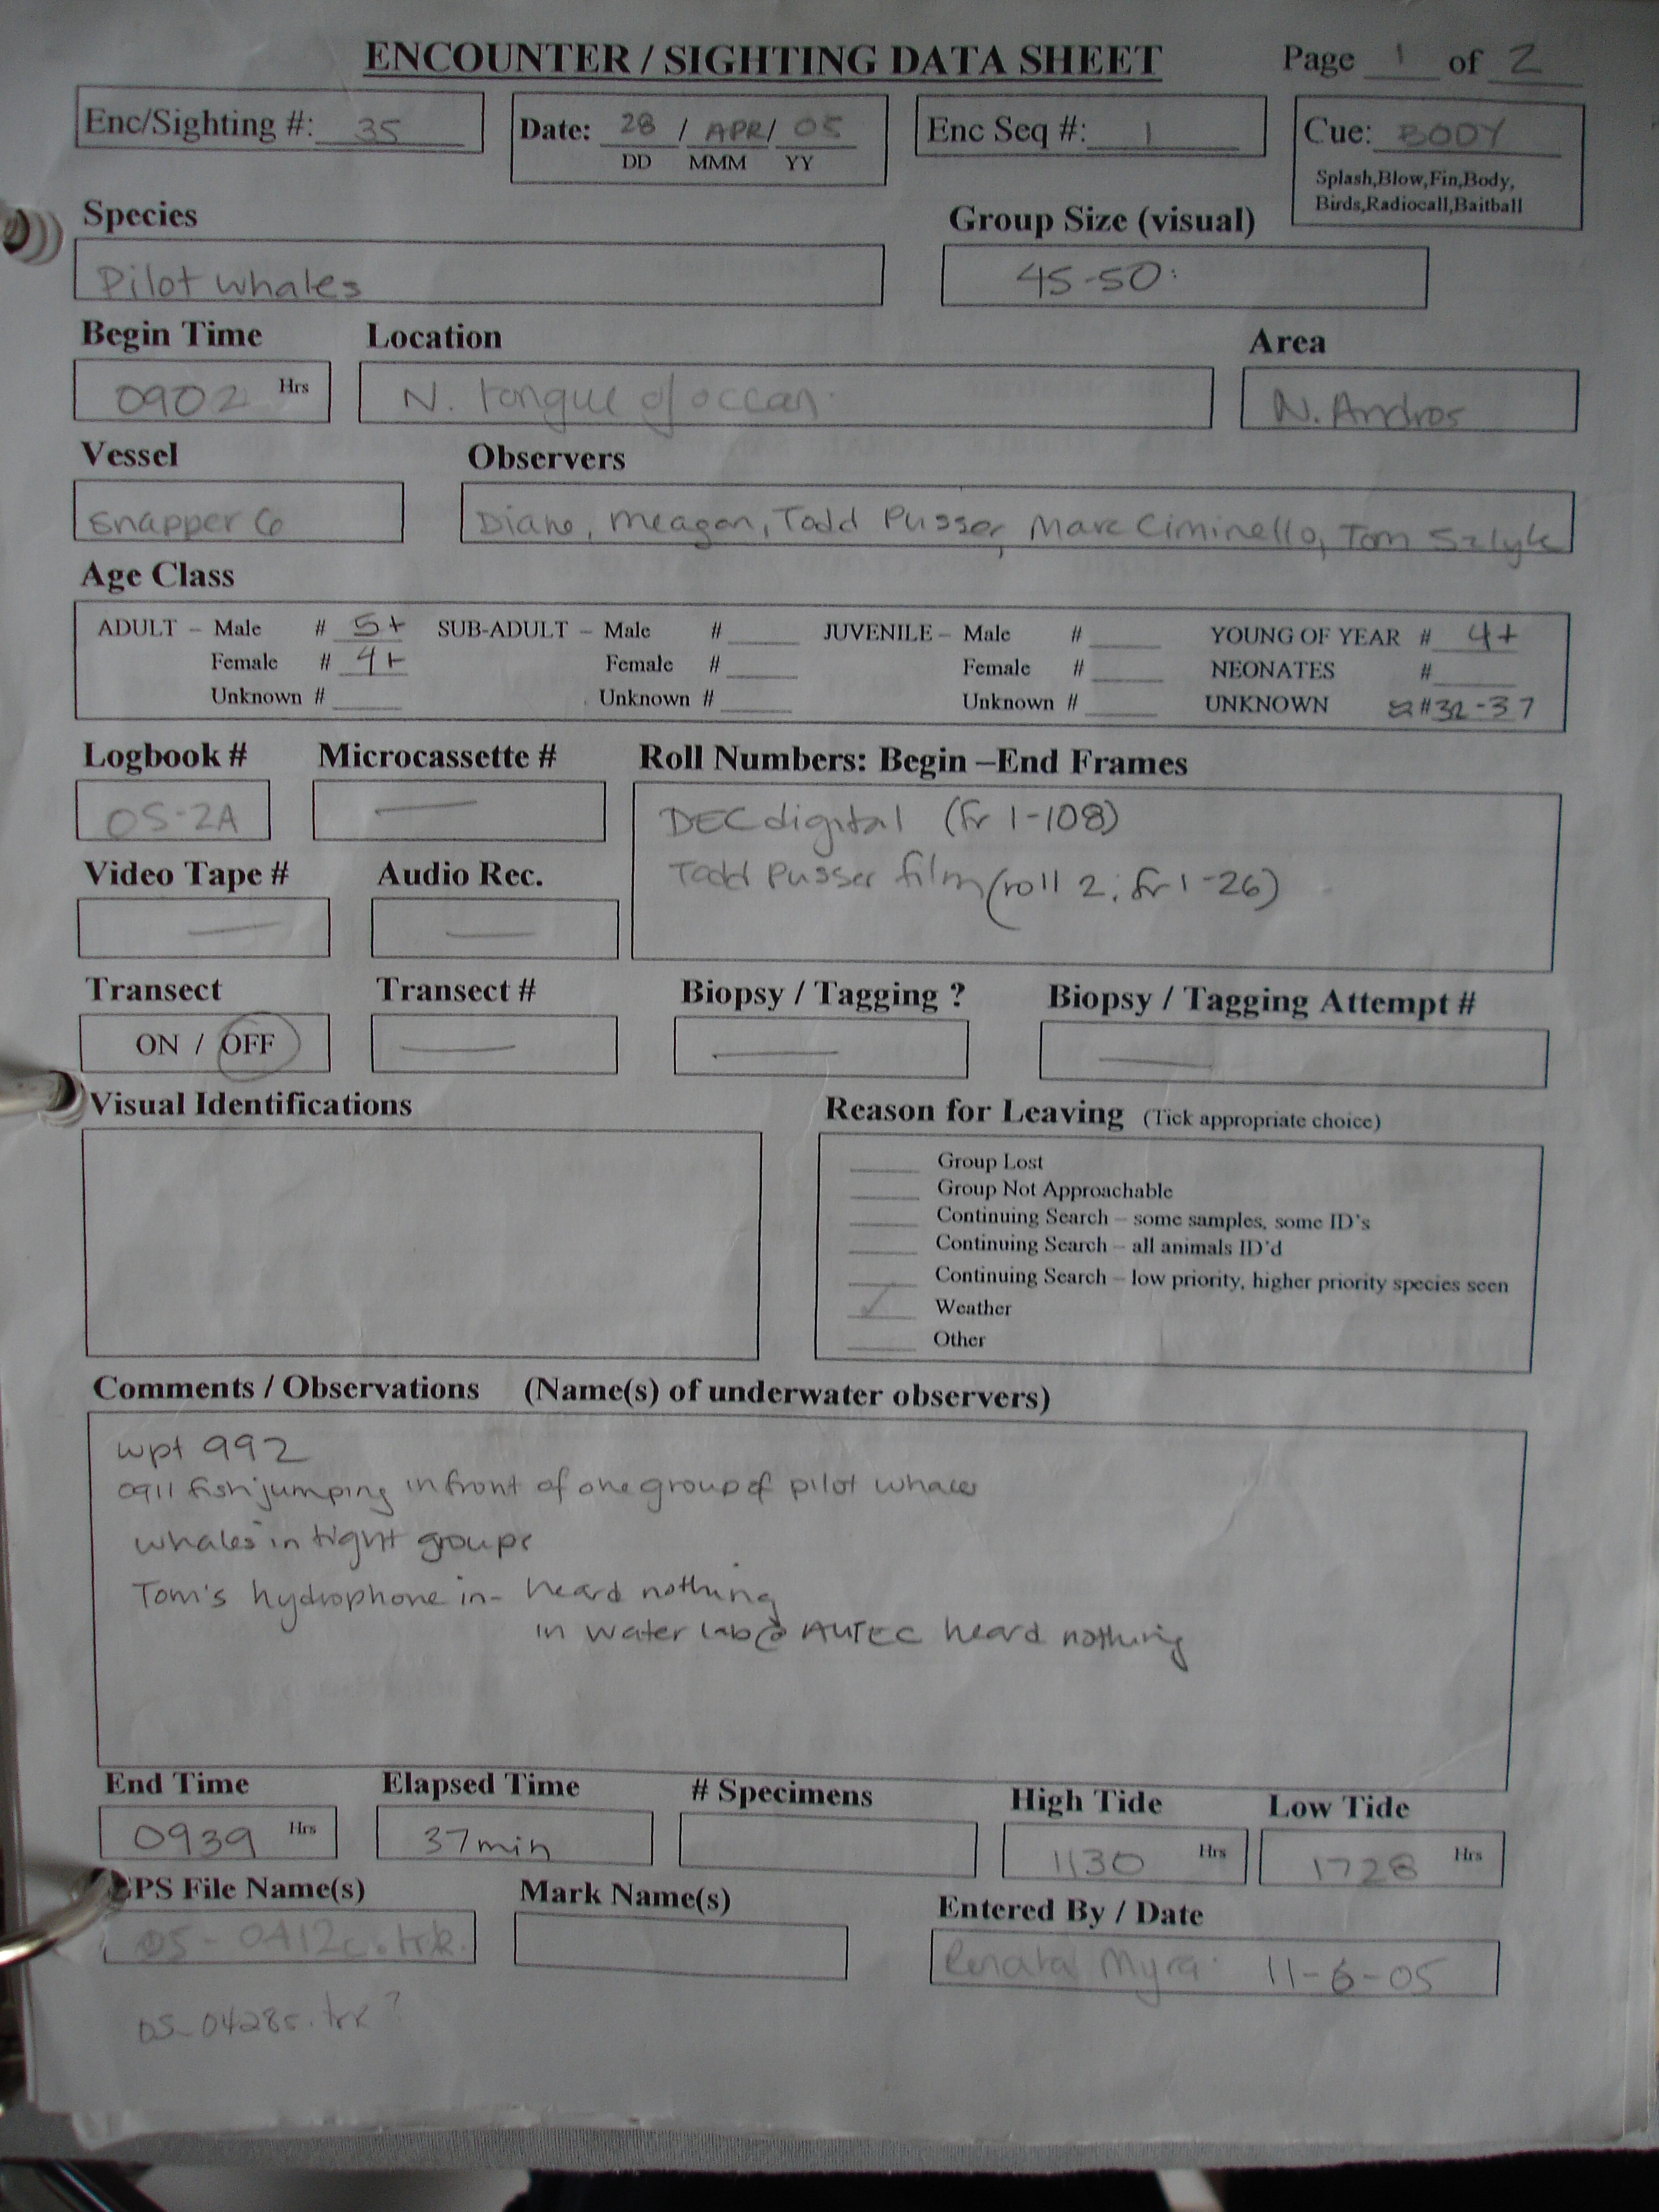 ENCOUNTER / SIGHTING DATA SHEET Page 1 of 2
Enc/Sighting #: 35 Date: 28 / APR / 05 Enc Seq #: 1 Cue: BODY
DD MMM YY
Splash,Blow,Fin,Body,
Birds,Radiocall,Baitball
Species Group Size (visual)
Pilot whales 45-50
Begin Time Location Area
0902 Hrs N. tongue of ocean. N. Andros
Vessel Observers
Snapper Co Diane, Meagan, Todd Pusser, Marc Ciminello, Tom Szlyk
Age Class
ADULT – Male # 5+ SUB-ADULT – Male # JUVENILE – Male # YOUNG OF YEAR # 4+
Female # 4+ Female # Female # NEONATES #
Unknown # Unknown # Unknown # UNKNOWN ≈#32-37
Logbook # Microcassette # Roll Numbers: Begin –End Frames
05-2A — DEC digital (fr 1-108)
Todd Pusser film (roll 2, fr 1-26)
Video Tape # Audio Rec.
— —
Transect Transect # Biopsy / Tagging ? Biopsy / Tagging Attempt #
ON / OFF — — —
Visual Identifications Reason for Leaving (Tick appropriate choice)
Group Lost
Group Not Approachable
Continuing Search – some samples, some ID's
Continuing Search – all animals ID'd
Continuing Search – low priority, higher priority species seen
✓ Weather
Other
Comments / Observations (Name(s) of underwater observers)
wpt 992
0911 fish jumping in front of one group of pilot whales
whales in tight groups
Tom's hydrophone in - heard nothing
in water lab @ AUTEC heard nothing
End Time Elapsed Time # Specimens High Tide Low Tide
0939 Hrs 37min 1130 Hrs 1728 Hrs
GPS File Name(s) Mark Name(s) Entered By / Date
05-0412c.trk. Renata Myra 11-6-05
05-0428c.trk ?